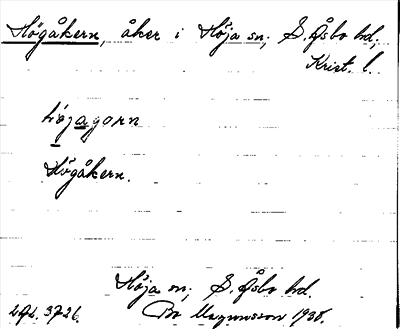 Högåkern, åker i Höja sn; S. Åsbo hd;
Krist. l.
hö́jagorn
Högåkern.
Höja sn; S. Åsbo hd.
Magnusson 1938.